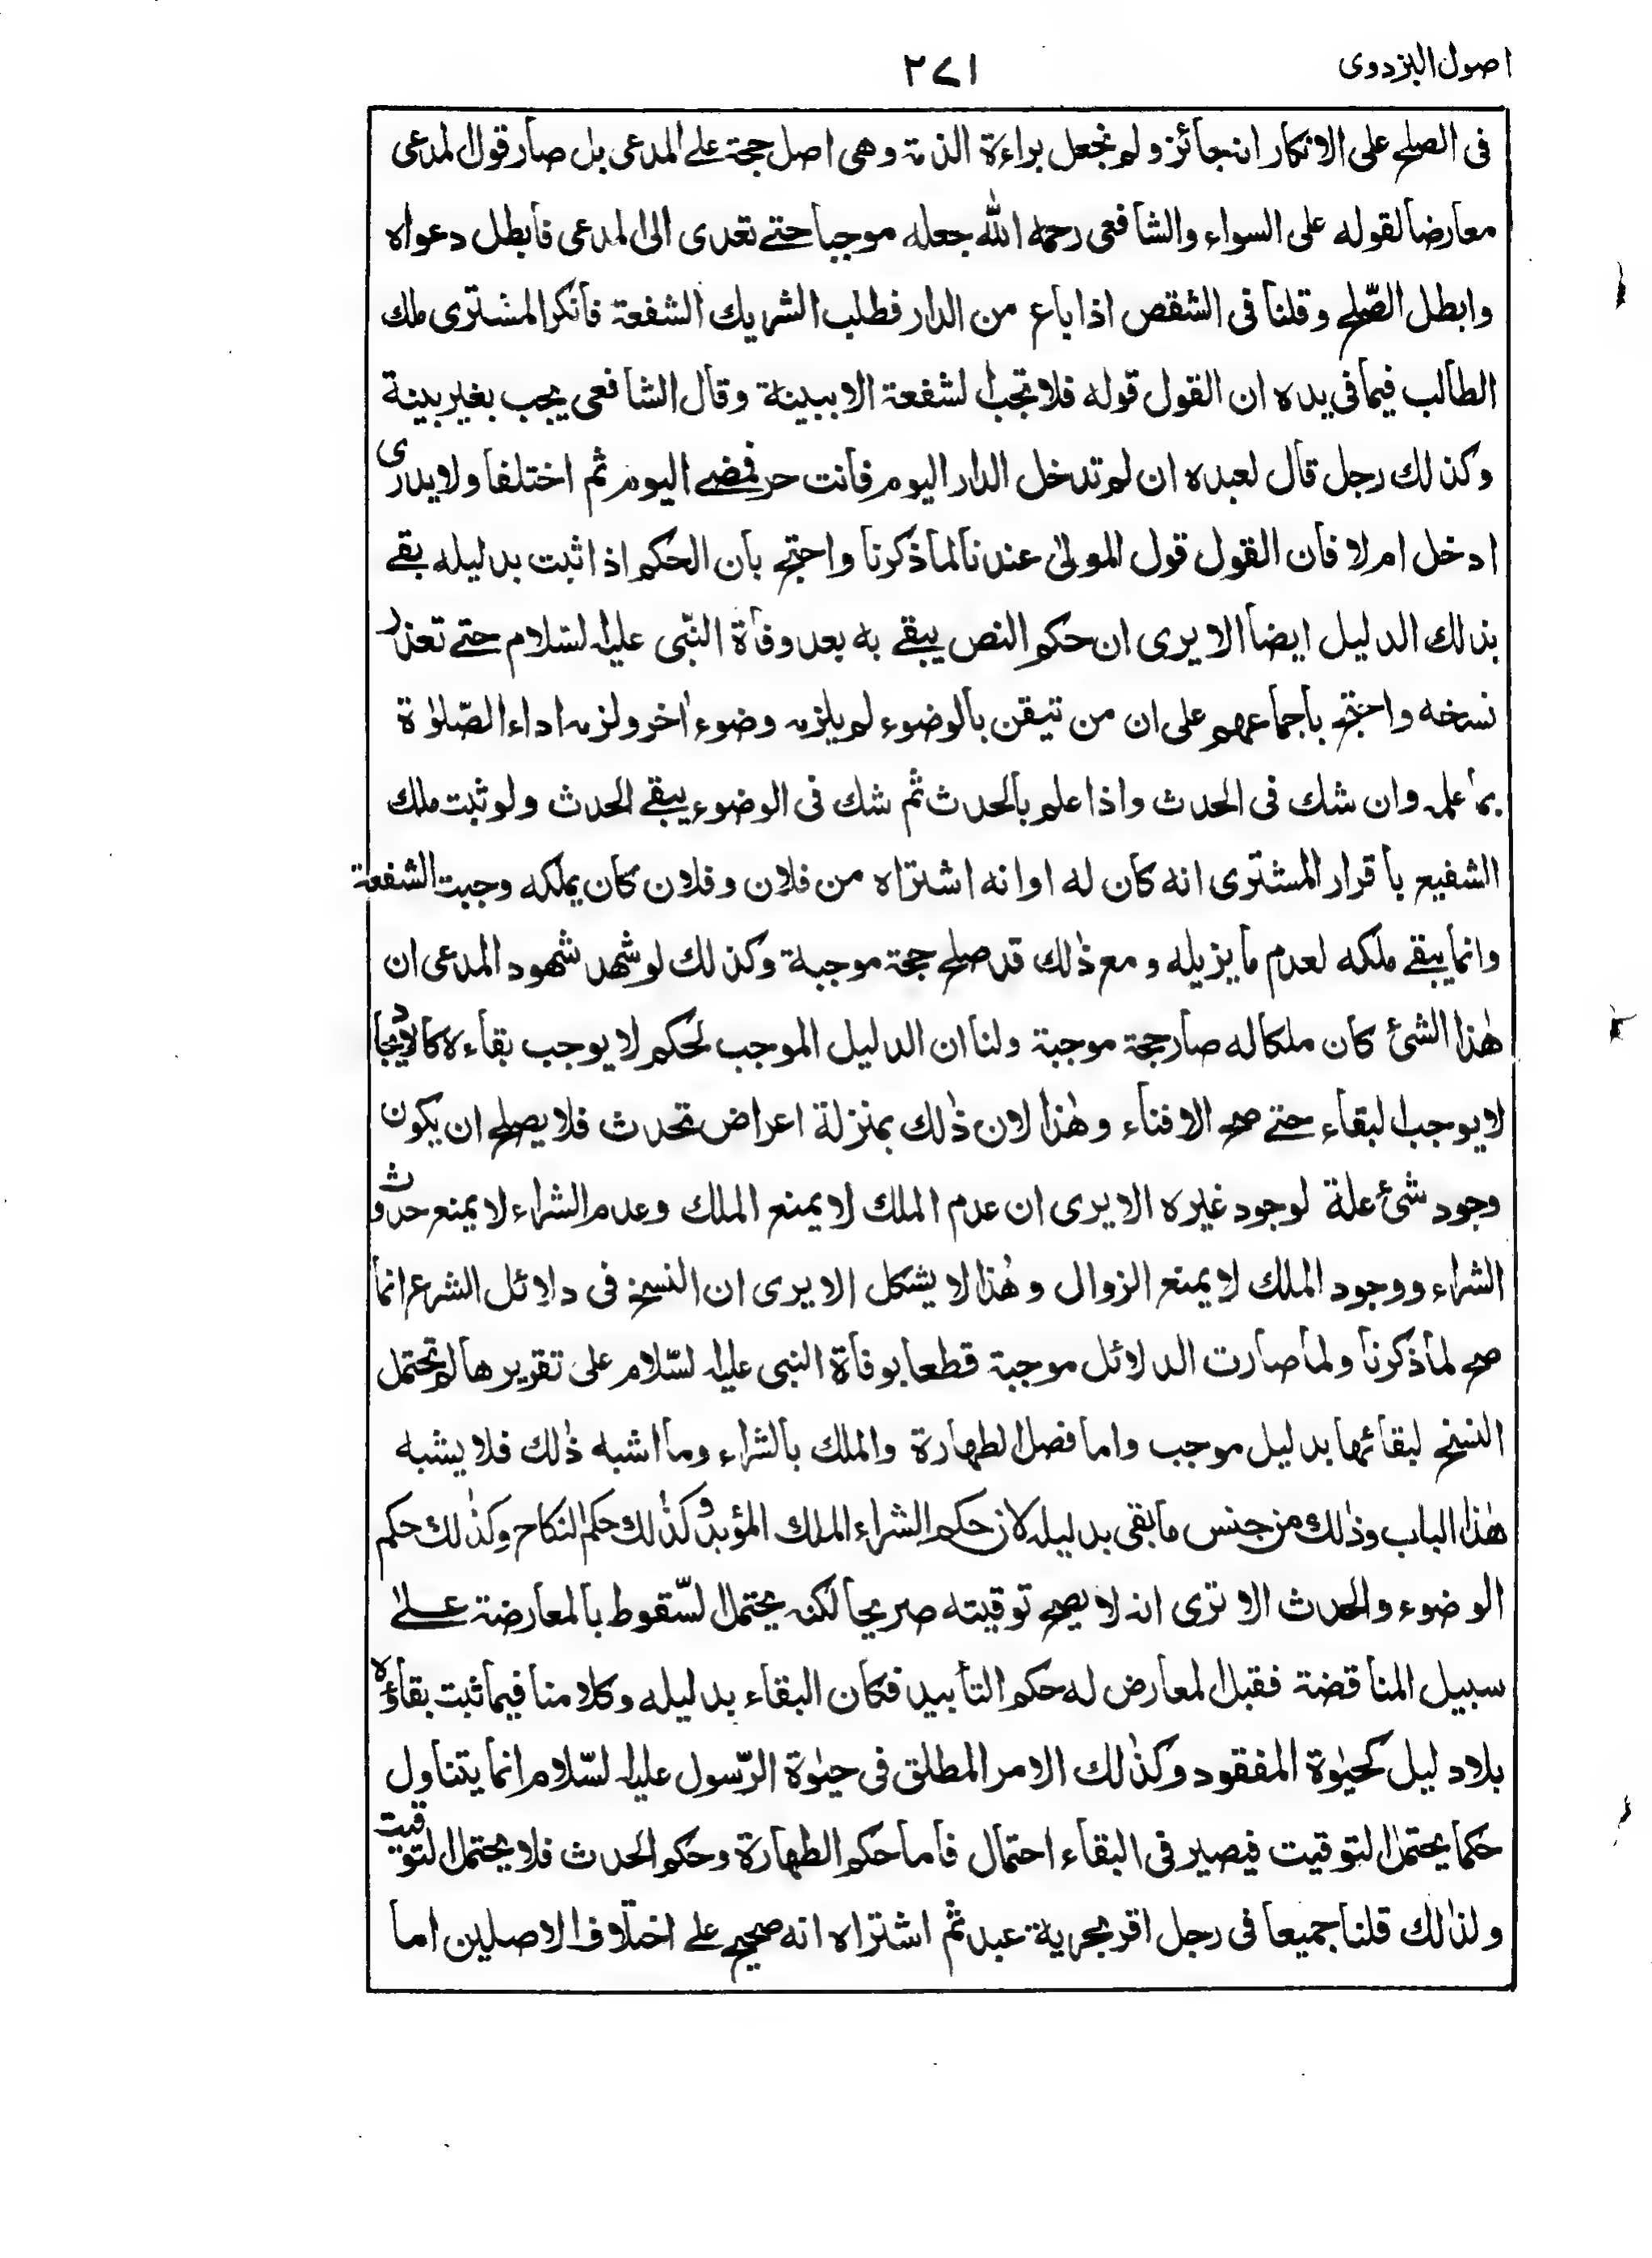 اصول البزدوی
۲۷۱
فى الصلح على الانكار انه جائز ولم نجعل براءة الذمة وهى اصل حجة على المدعى بل صار قول المدعى
معارضا لقوله على السواء والشافعى رحمه الله جعله موجبا حتى تعدى الى المدعى فابطل دعواه
وابطل الصّلح وقلنا فى الشقص اذا باع من الدار فطلب الشريك الشفعة فانكر المشترى ملك
الطالب فيما فى يده ان القول قوله فلا تجب الشفعة الا ببينة وقال الشافعى يجب بغير بينة
وكذلك رجل قال لعبده ان لم تدخل الدار اليوم فانت حر فمضى اليوم ثم اختلفا ولا يدرى
ادخل ام لا فان القول قول المولىٰ عندنا لما ذكرنا واحتج بان الحكم اذا ثبت بدليله بقى
بذلك الدليل ايضا الا يرى ان حكم النص يبقى به بعد وفاة النّبى عليه السّلام حتى تعذر
نسخه واحتج باجماعهم على ان من تيقن بالوضوء لم يلزمه وضوء اٰخر ولزمه اداء الصّلوٰة
بما علمه وان شك فى الحدث واذا علم بالحدث ثم شك فى الوضوء يبقى الحدث ولو ثبت ملك
الشفيع باقرار المشترى انه كان له او انه اشتراه من فلان وفلان كان يملكه وجبت الشفعة
وانما يبقى ملكه لعدم ما يزيله ومع ذٰلك قد صلح حجة موجبة وكذلك لو شهد شهود المدعى ان
هٰذا الشئ كان ملكا له صار حجة موجبة ولنا ان الدليل الموجب لحكم لا يوجب بقاءه كالايجاد
لا يوجب البقاء حتى صح الافناء وهٰذا لان ذٰلك بمنزلة اعراض تحدث فلا يصلح ان يكون
وجود شئ علة لوجود غيره الا يرى ان عدم الملك لا يمنع الملك وعدم الشراء لا يمنع حدوث
الشراء ووجود الملك لا يمنع الزوال وهٰذا لا يشكل الا يرى ان النسخ فى دلائل الشرع انما
صح لما ذكرنا ولما صارت الدلائل موجبة قطعا بوفاة النبى عليه السّلام على تقريرها لم تحتمل
النسخ لبقائها بدليل موجب واما فصل الطهارة والملك بالشراء وما اشبه ذٰلك فلا يشبه
هٰذا الباب وذٰلك من جنس ما بقى بدليله لان حكم الشراء الملك المؤبد وكذٰلك حكم النكاح وكذٰلك حكم
الوضوء والحدث الا ترى انه لا يصح توقيته صريحا لكنه يحتمل السّقوط بالمعارضة علىٰ
سبيل المناقضة فقبل المعارض له حكم التأبيد فكان البقاء بدليله وكلامنا فيما ثبت بقاؤه
بلا دليل كحيٰوة المفقود وكذٰلك الامر المطلق فى حيٰوة الرّسول عليه السّلام انما يتناول
حكما يحتمل التوقيت فيصير فى البقاء احتمال فاما حكم الطهارة وحكم الحدث فلا يحتمل التوقيت
ولذٰلك قلنا جميعا فى رجل اقر بحرية عبد ثم اشتراه انه صحيح على اختلاف الاصلين اما